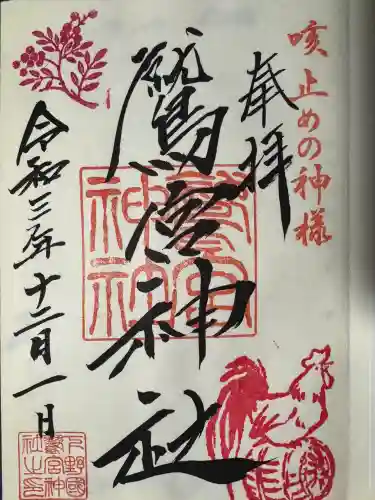 咳止めの神様
奉拝
鷲宮神社
令和三年十二月一日
鷲宮
神社
下野國
鷲宮神
社之印